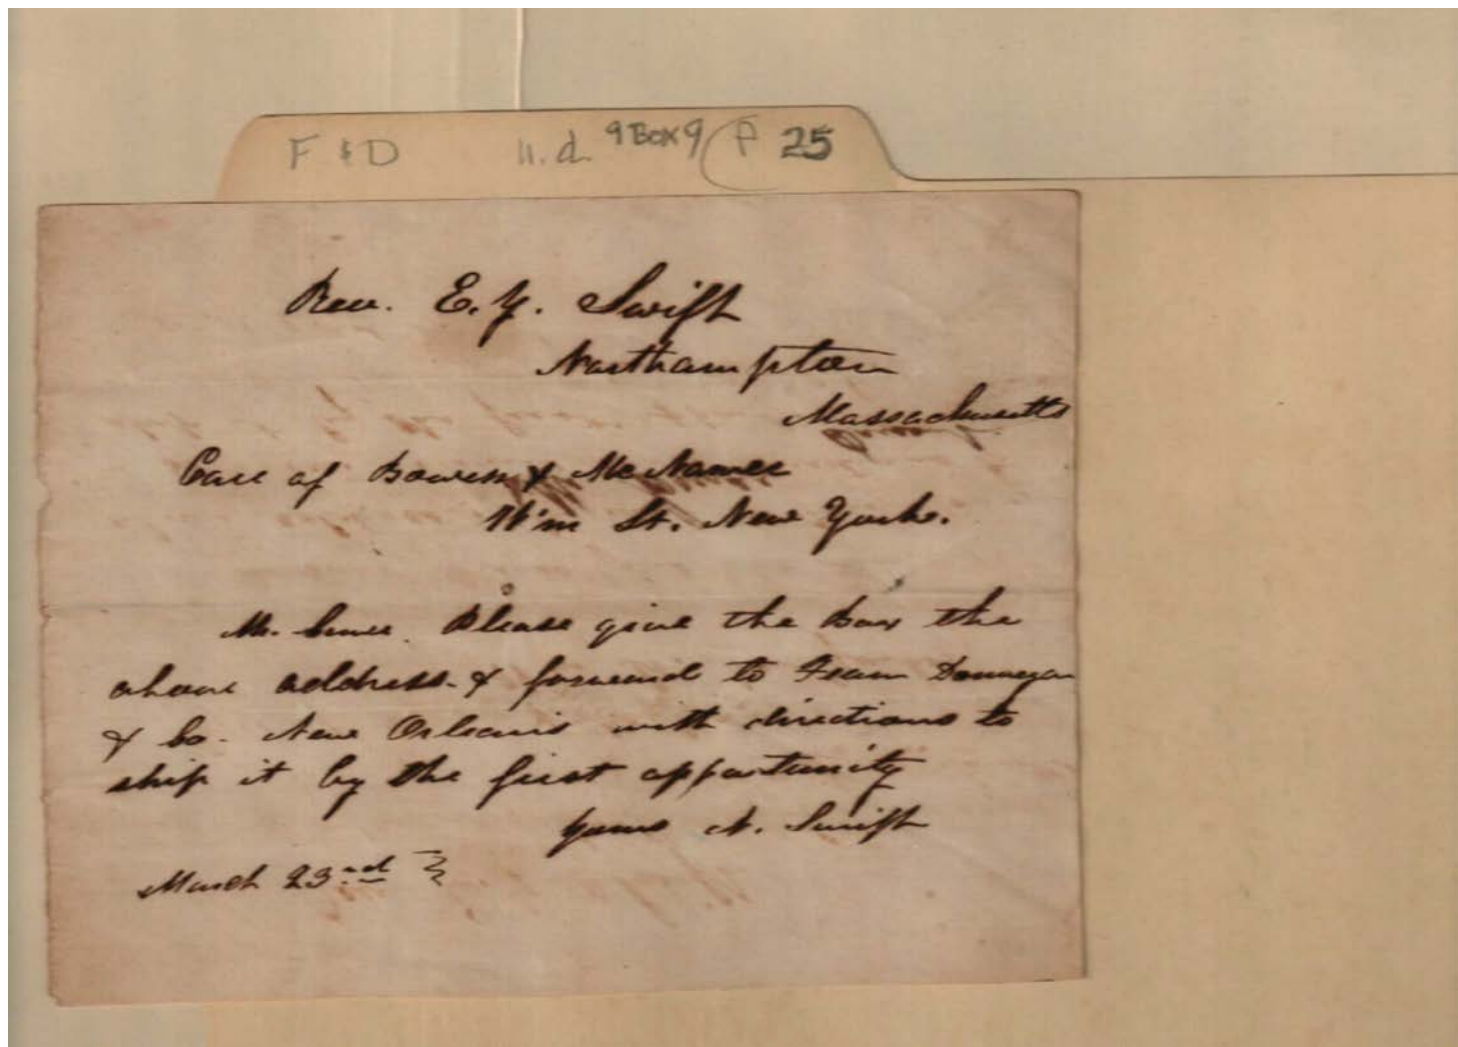 F & D n.d. 9 Box 9 P 25
Rev. E. Y. Swift
Northampton
Massachusetts
Care of Bowen & McNamee
Wm St. New York.
Mr. Please give the Box the
above address. & forward to Fearn Donnegan
& Co. New Orleans with directions to
ship it by the first opportunity
yours N. Swift
March 23rd